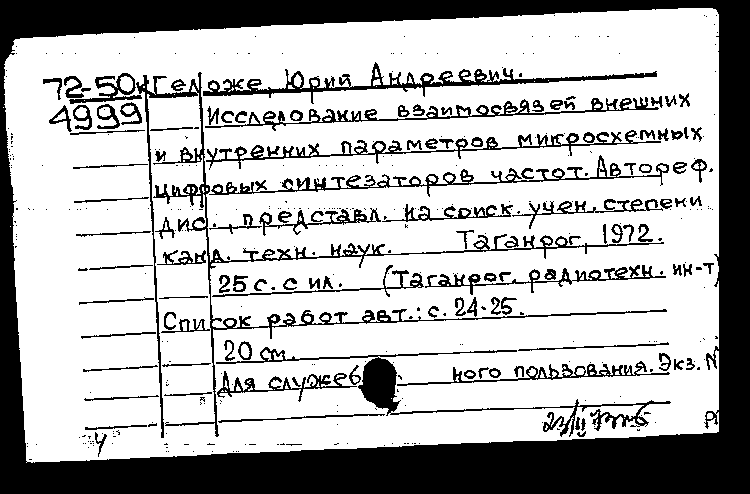 72-50к Геложе, Юрий Андреевич.
4999 Исследование взаимосвязей внешних
и внутренних параметров микросхемных
цифровых синтезаторов частот. Автореф.
дис., представл. на соиск. учен. степени
канд. техн. наук. Таганрог, 1972.
25 с. с ил. (Таганрог. радиотехн. ин-т)
Список работ авт.: с. 24-25.
20 см.
Для служебного пользования. Экз. N
23/II
4